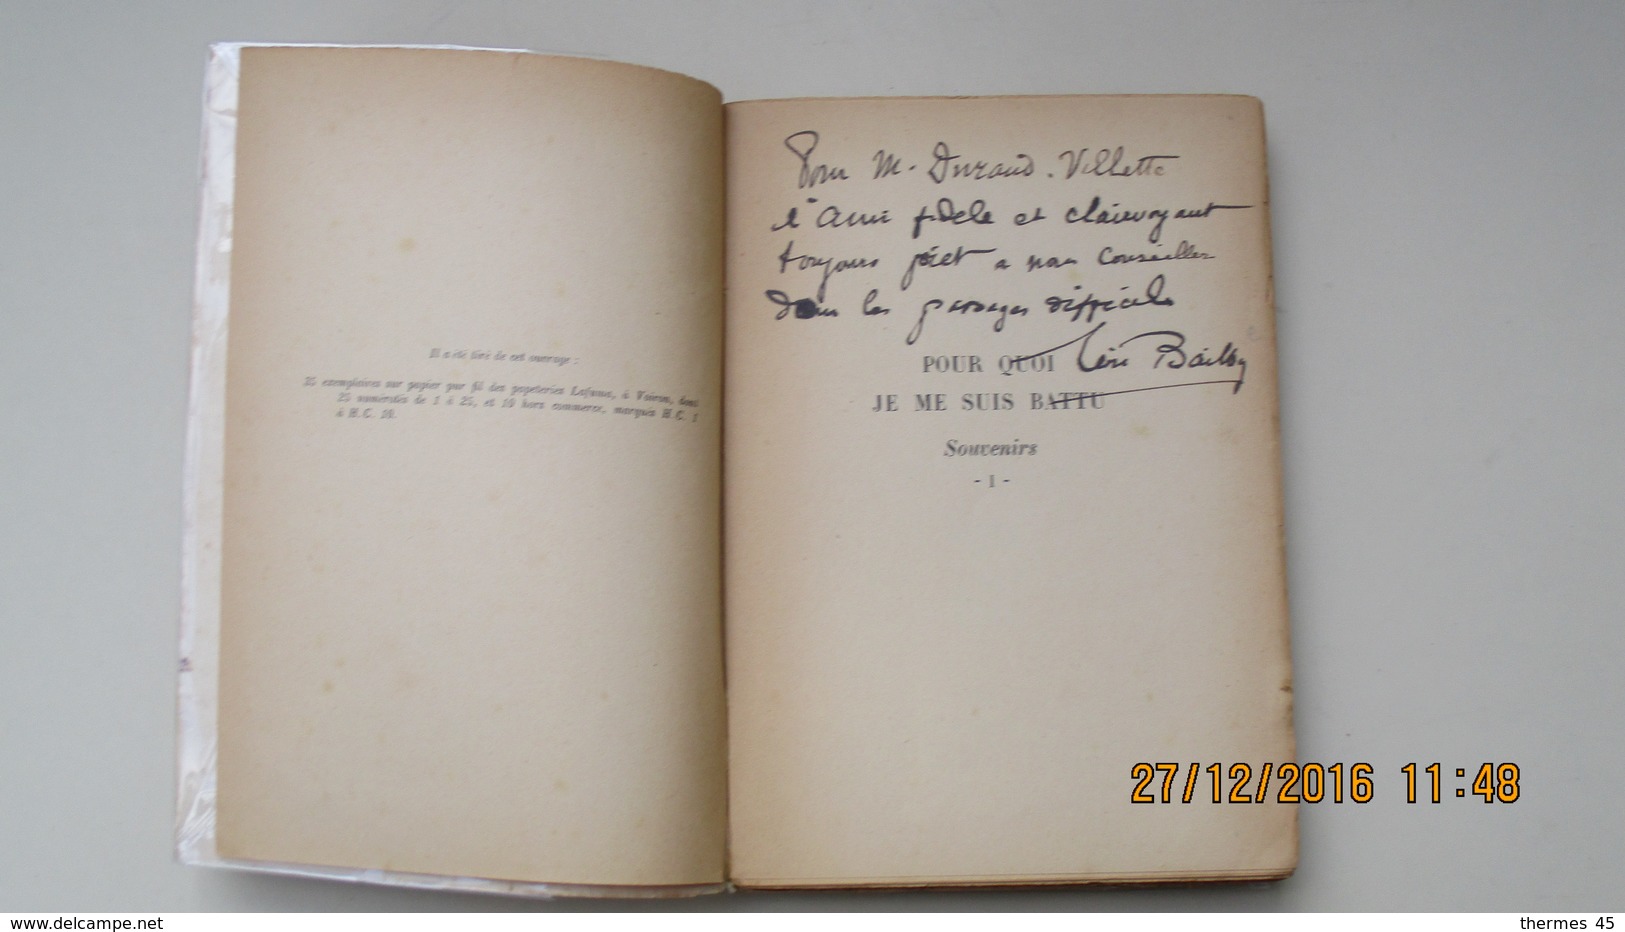 Il a été tiré de cet ouvrage :
35 exemplaires sur papier pur fil des papeteries Lafuma, à Voiron, dont
25 numérotés de 1 à 25, et 10 hors commerce, marqués H.C. 1
à H.C. 10.
Pour M. Durand-Villette
l'ami fidèle et clairvoyant
toujours prêt a nous conseiller
dans les passages difficiles
Léon Bailby
POUR QUOI
JE ME SUIS BATTU
Souvenirs
- 1 -
27/12/2016 11:48
www.delcampe.net
thermes 45